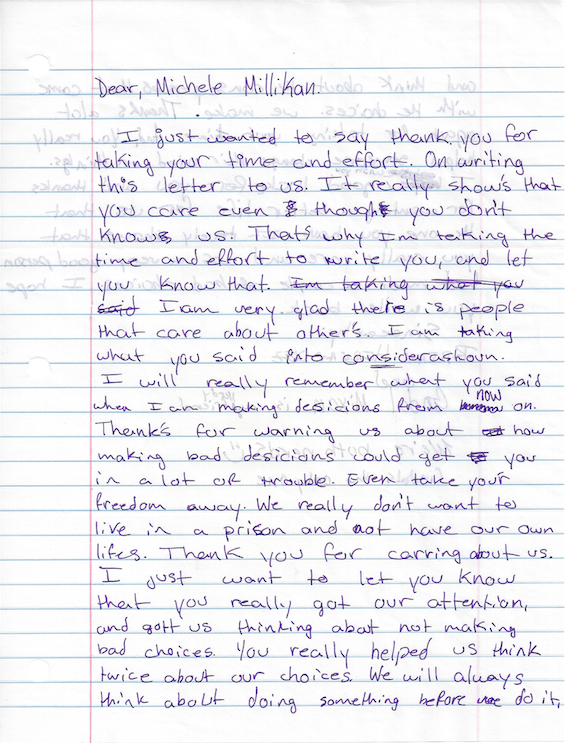 Dear, Michele Millikan.
I just wanted to say thank you for
taking your time and effort. On writing
this letter to us. It really show's that
you care even though you don't
know us. Thats why Im taking the
time and effort to write you, and let
you know that. Im taking what you
said I am very glad there is people
that care about other's. I am taking
what you said into considerashoun.
I will really remember what you said
when I am making desicions from now on.
Thank's for warning us about how
making bad desicions could get you
in a lot of trouble. Even take your
freedom away. We really don't want to
live in a prison and not have our own
lifes. Thank you for carring about us.
I just want to let you know
that you really got our attention,
and gott us thinking about not making
bad choices. You really helped us think
twice about our choices. We will always
think about doing something before we do it,